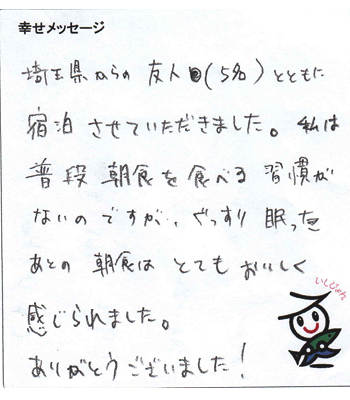 幸せメッセージ
埼玉県からの 友人(5名)とともに
宿泊 させていただきました。私は
普段 朝食を食べる 習慣が
ないの ですが、ぐっすり 眠った
あとの 朝食は とても おいしく
感じられました。
ありがとうございました!
いしぴょん